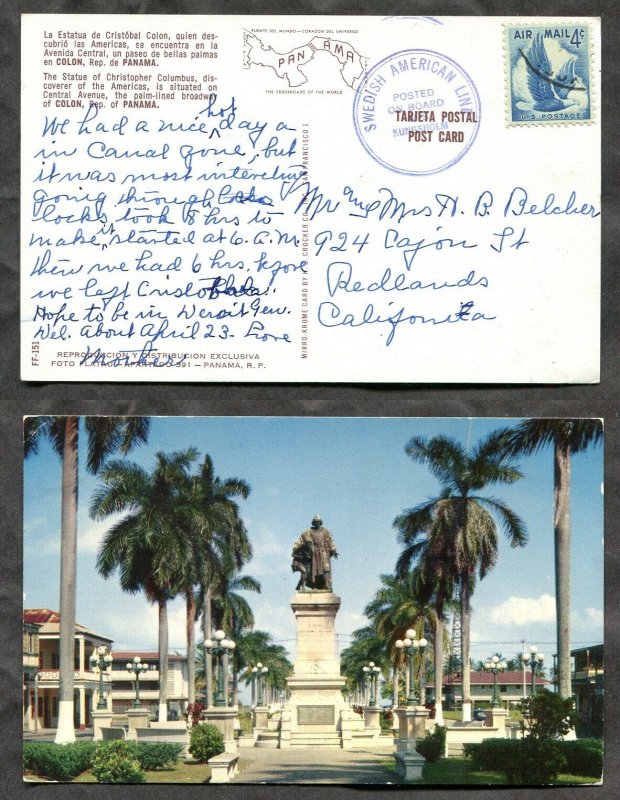 La Estatua de Cristóbal Colon, quien des-
cubrió las Americas, se encuentra en la
Avenida Central, un paseo de bellas palmas
en COLON, Rep. de PANAMA.
The Statue of Christopher Columbus, dis-
coverer of the Americas, is situated on
Central Avenue, the palm-lined broadway
of COLON, Rep. of PANAMA.
PUENTE DEL MUNDO - CORAZON DEL UNIVERSO
PANAMA
THE CROSSROADS OF THE WORLD
SWEDISH AMERICAN LINE
POSTED
ON BOARD
KUNGSHOLM
TARJETA POSTAL
POST CARD
AIR MAIL 4¢
U.S. POSTAGE
We had a nice hot day
in Canal Zone, but
it was most interesting
going through
locks took 8 hrs to
make it, started at 6 A.M.
then we had 6 hrs. before
we left
Hope to be in
about April 23 - Love
Mother
Mr and Mrs H. B. Belcher
924 Cajon St
Redlands
California
MIRRO-KROME CARD BY H. S. CROCKER CO. SAN FRANCISCO 1
FF-151
REPRODUCCION Y DISTRIBUCION EXCLUSIVA
FOTO FLATAU APARTADO 391 — PANAMA, R. P.